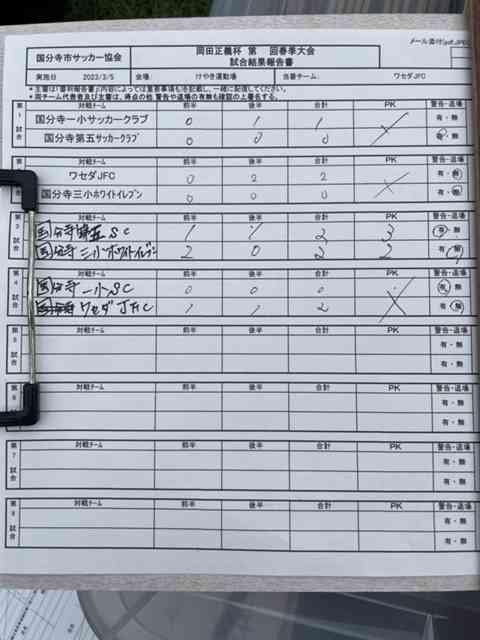 メール添付(pdf,JPEG
国分寺市サッカー協会 岡田正義杯 第 回春季大会
試合結果報告書
実施日 2023/3/5 会場: けやき運動場 当番チーム: ワセダJFC
*主審は「審判報告書」内容によっては重要事項も含記載し、一緒に配信してください。
* 両チーム代表者及び主審は、得点の他 警告や退場の有無も確認の上署名する。
第1試合 対戦チーム 前半 後半 合計 PK 警告・退場
国分寺一小サッカークラブ 0 1 1 有・無
国分寺第五サッカークラブ 0 0 0 有・無
第 試合 対戦チーム 前半 後半 合計 PK 警告・退場
ワセダJFC 0 2 2 有・無
国分寺三小ホワイトイレブン 0 0 0 有・無
第3試合 対戦チーム 前半 後半 合計 PK 警告・退場
国分寺第五SC 1 1 2 3 有・無
国分寺三小ホワイトイレブン 2 0 2 2 有・無
第4試合 対戦チーム 前半 後半 合計 PK 警告・退場
国分寺一小SC 0 0 0 有・無
ワセダJFC 1 1 2 有・無
第5試合 対戦チーム 前半 後半 合計 PK 警告・退場
有・無
有・無
第6試合 対戦チーム 前半 後半 合計 PK 警告・退場
有・無
有・無
第7試合 対戦チーム 前半 後半 合計 PK 警告・退場
有・無
有・無
第8試合 対戦チーム 前半 後半 合計 PK 警告・退場
有・無
有・無